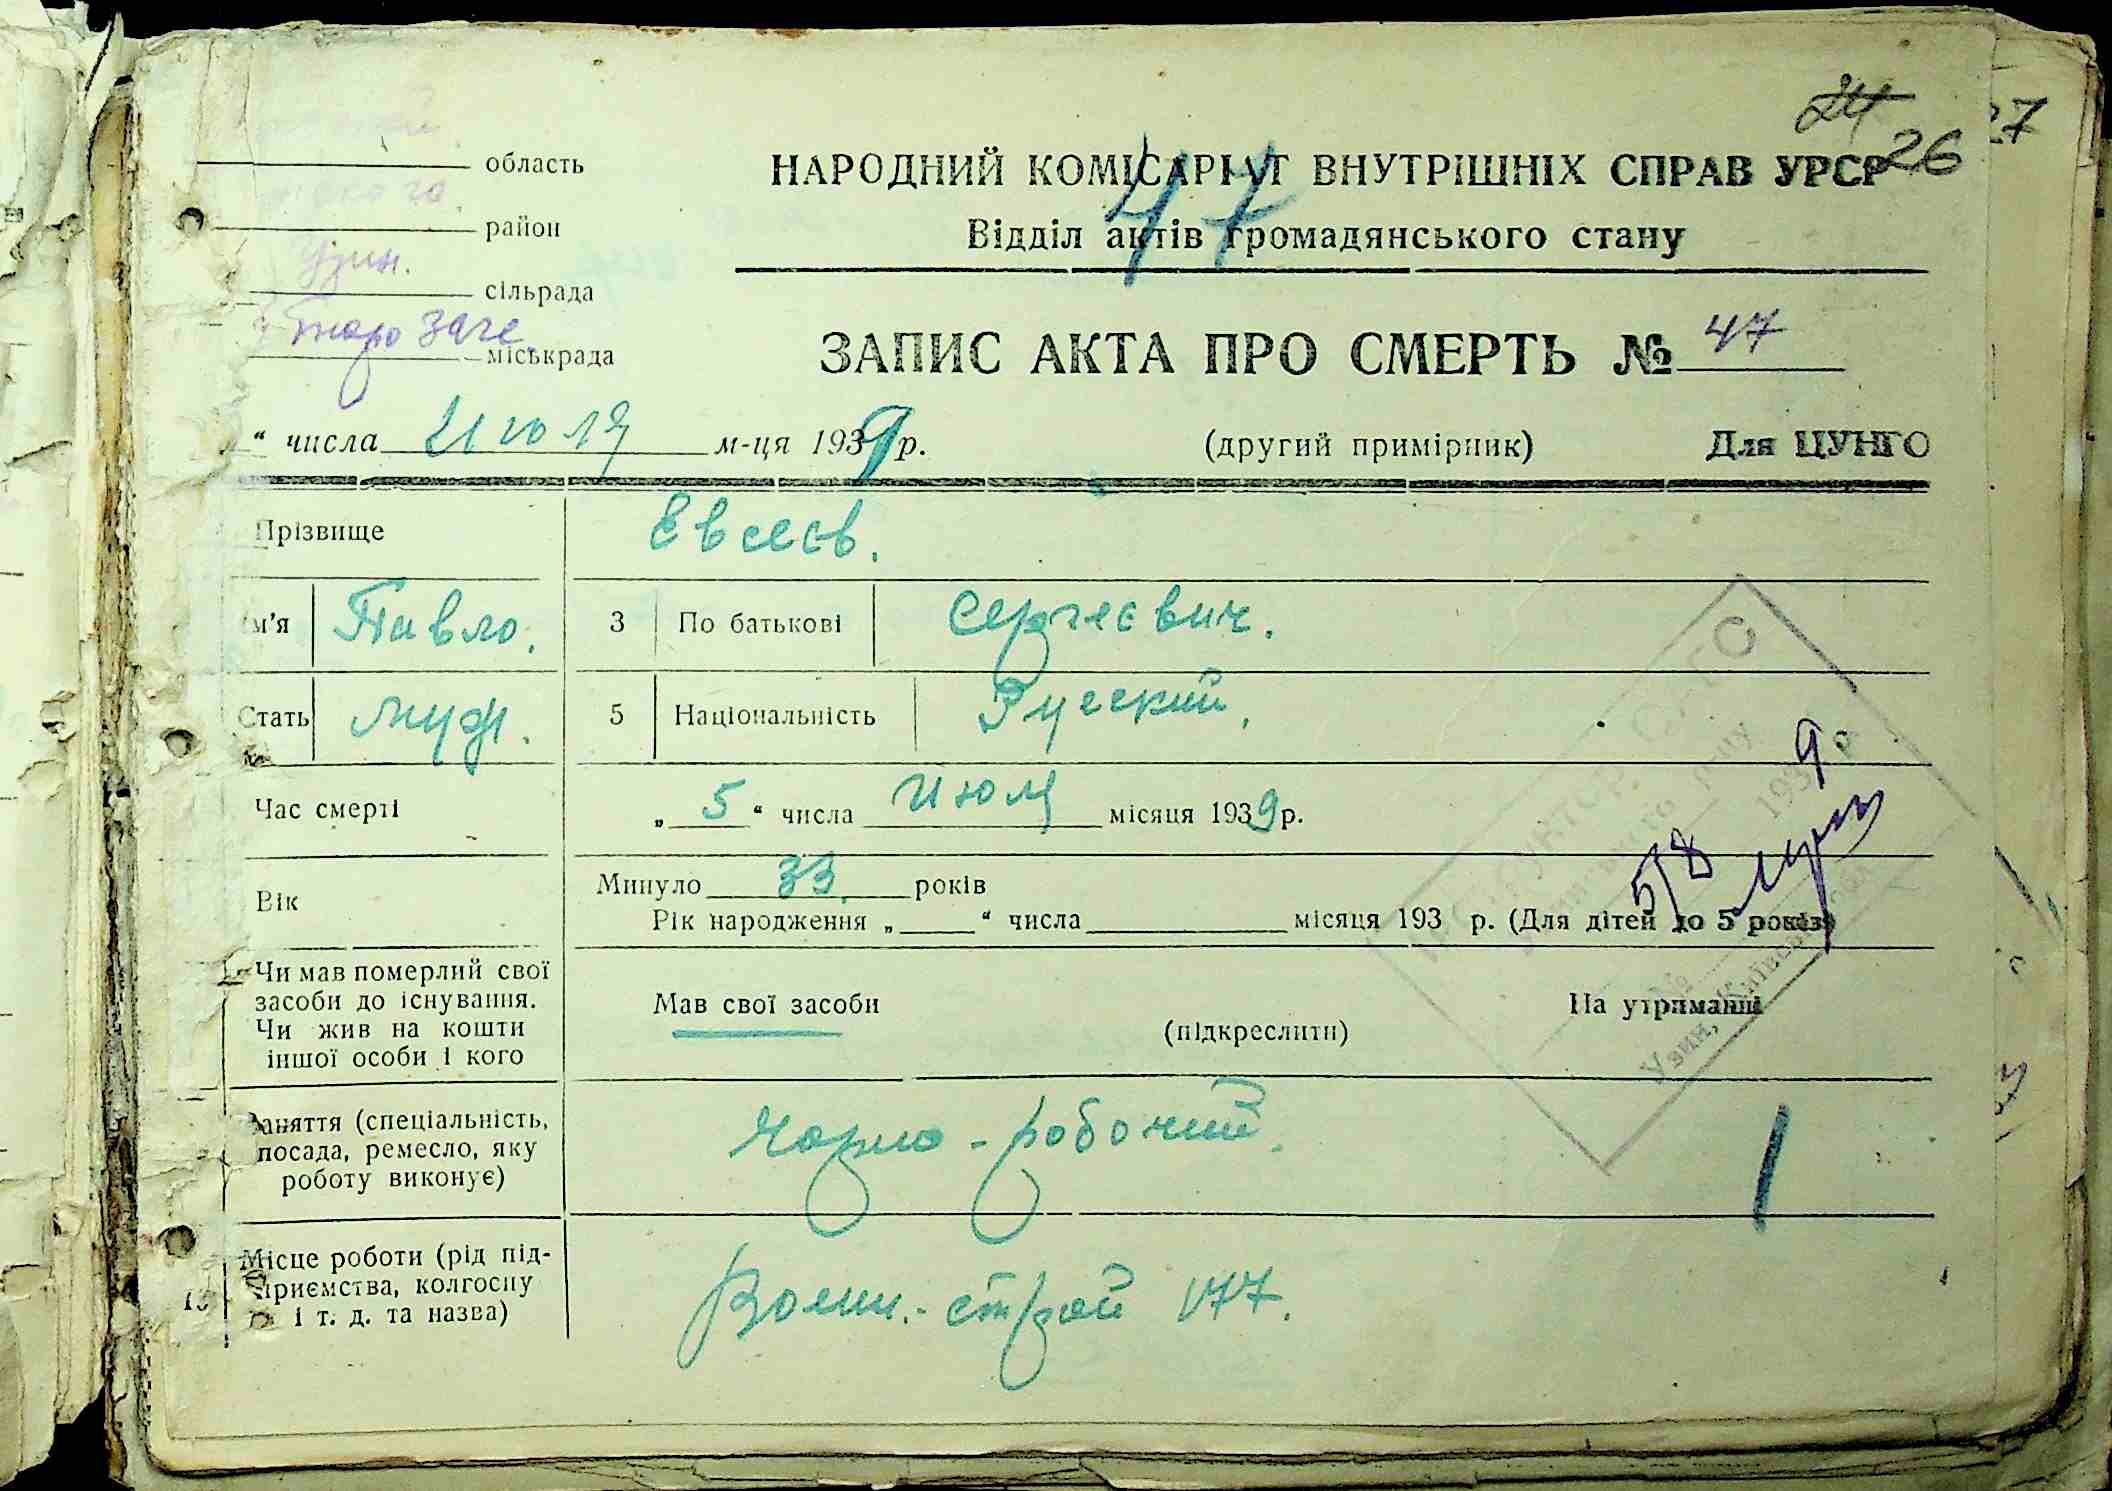 24 26 27
область
район
Узин. сільрада
міськрада
НАРОДНИЙ КОМІСАРІАТ ВНУТРІШНІХ СПРАВ УРСР
47
Відділ актів громадянського стану
ЗАПИС АКТА ПРО СМЕРТЬ № 47
“ числа Июля м-ця 1939 р. (другий примірник) Для ЦУНГО
Прізвище Евсеєв.
ім’я Павло. 3 По батькові Сергеєвич.
Стать муж. 5 Національність Русский.
Час смерті „ 5 “ числа Июля місяця 1939 р.
Вік Минуло 33 років
Рік народження „ “ числа місяця 193 р. (Для дітей до 5 років)
Чи мав померлий свої засоби до існування. Чи жив на кошти іншої особи і кого
Мав свої засоби (підкреслити) На утриманні
Заняття (спеціальність, посада, ремесло, яку роботу виконує)
Чорно-робочий.
1
Місце роботи (рід підприємства, колгоспу і т. д. та назва)
Воєнн.-строй 177.
5/8
Узин, Київської